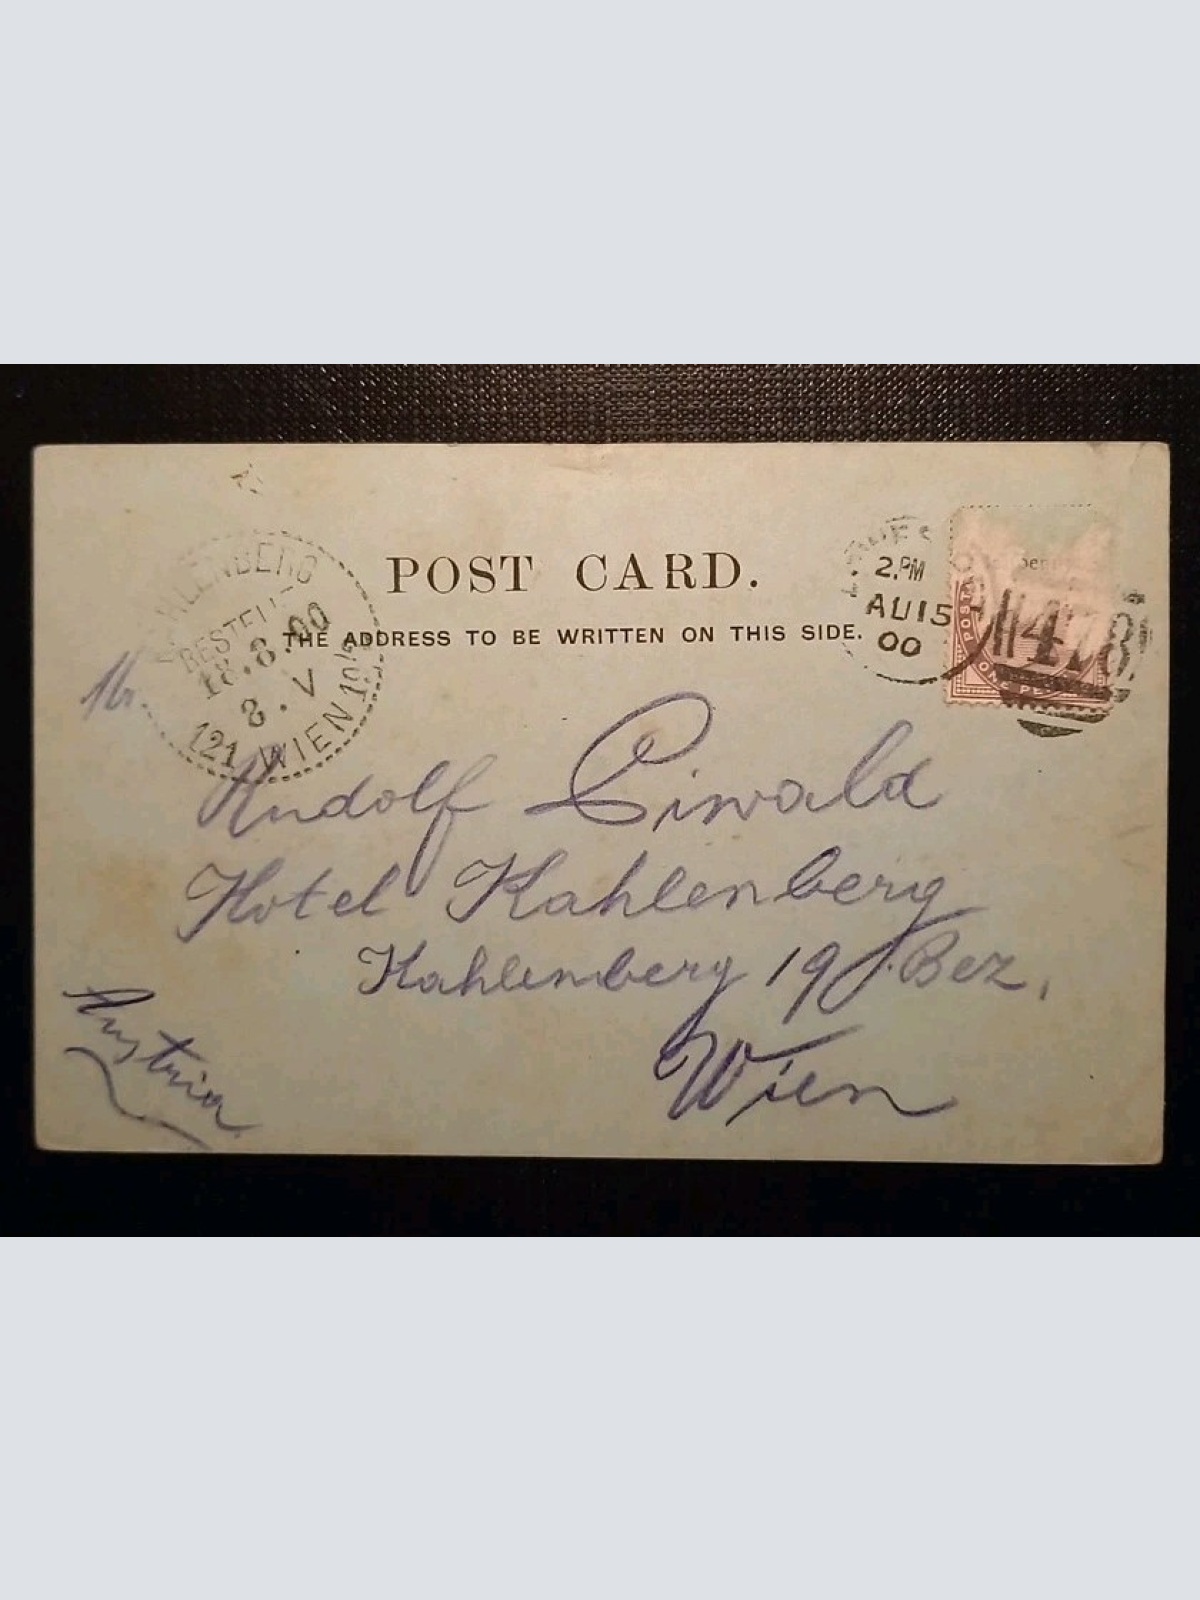 POST CARD.
THE ADDRESS TO BE WRITTEN ON THIS SIDE.
2.PM
AU15
00
478
POSTA
ONE PE
BESTELL
18.8.00
8.V
121 WIEN 19/5
Mr.
Rudolf Eiwald
Hotel Kahlenberg
Kahlenberg 19. Bez.
Wien
Austria